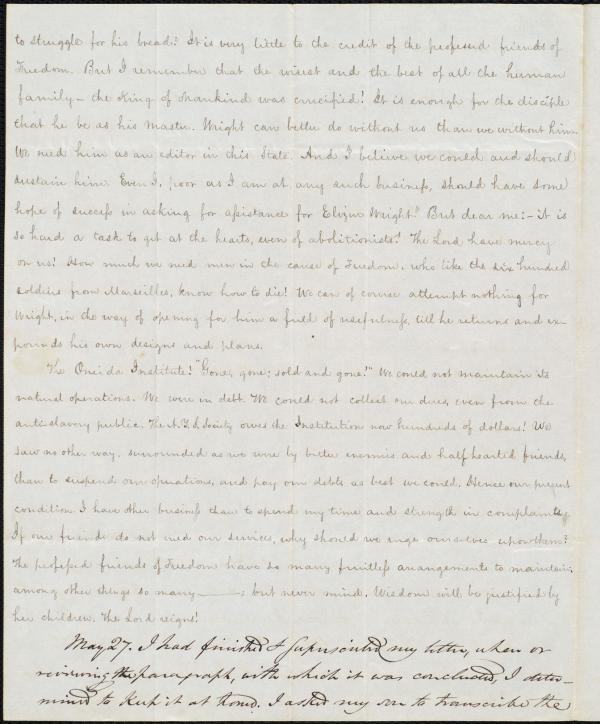 to struggle for his bread? It is very little to the credit of the professed friends of
Freedom. But I remember that the wisest and the best of all the human
family – the King of Mankind was crucified! It is enough for the disciple
that he be as his Master. Wright can better do without us than we without him.
We need him as an editor in this State. And I believe we could and should
sustain him. Even I, poor as I am at any such business, should have some
hope of success in asking for assistance for Elizur Wright. But dear me! – it is
so hard a task to get at the hearts, even of abolitionists! The Lord have mercy
on us! How much we need men in the cause of Freedom, who like the six hundred
soldiers from Marseilles, know how to die! We can of course attempt nothing for
Wright, in the way of opening for him a field of usefulness, till he returns and ex-
pounds his own designs and plans.
The Oneida Institute! "Gone, gone; sold and gone!" We could not maintain its
natural operations. We were in debt. We could not collect our dues, even from the
anti-slavery public. The N.Y.S. Society owes the Institution now hundreds of dollars! We
saw no other way, surrounded as we were by bitter enemies and halfhearted friends,
than to suspend our operations, and pay our debts as best we could. Hence our present
condition. I have other business than to spend my time and strength in complaints.
If our friends do not need our services, why should we urge ourselves upon them?
The professed friends of Freedom have so many fruitless arrangements to maintain;
among other things so many ——; but never mind. Wisdom will be justified by
her children. The Lord reigns!
May 27. I had finished & superscribed my letter, when on
reviewing the paragraph, with which it was concluded, I deter-
mined to keep it at home. I asked my son to transcribe the